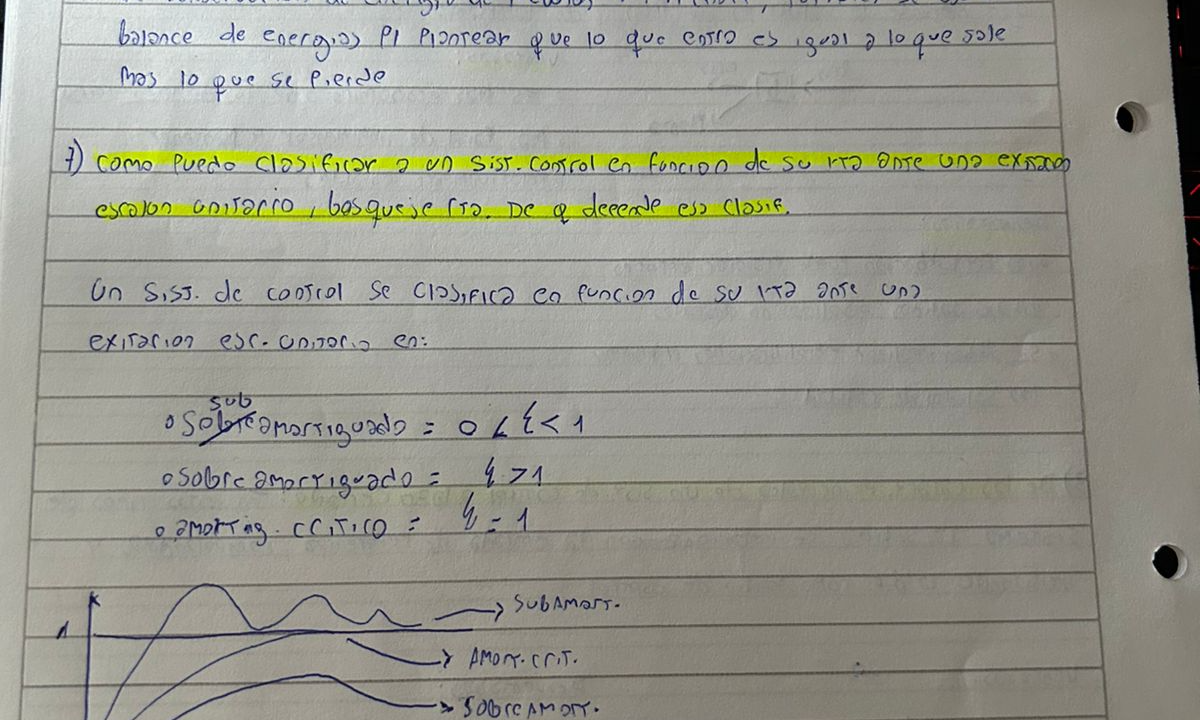 balance de energias Pl Plantear que lo que entra es igual a lo que sale
mas lo que se Pierde
7) como Puedo clasificar a un sist. control en funcion de su rta ante una
escalon unitario, bosqueje rta. De q depende esa clasif.
Un sist. de control se clasifica en funcion de su rta ante una
exitacion esc. unitario en:
sub
o Sobreamortiguado = 0 < ξ < 1
o Sobreamortiguado = ξ > 1
o amortig. critico = ξ = 1
1
→ SUBAMORT.
→ AMORT. CRIT.
→ SOBREAMORT.